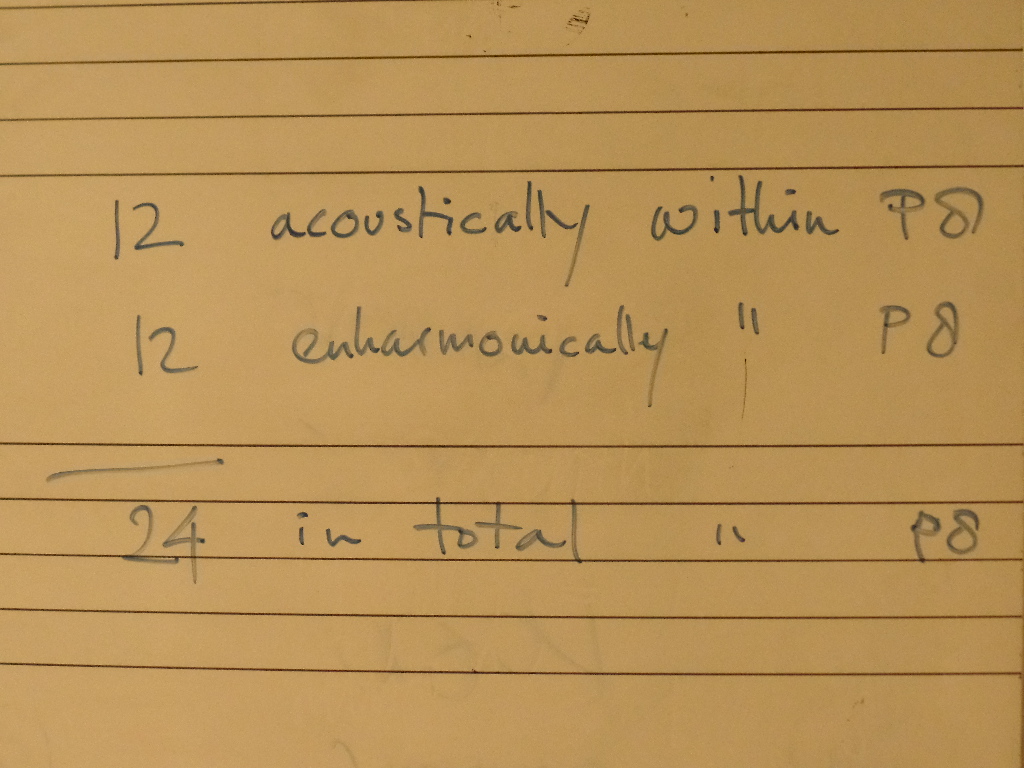 12 acoustically within P8
12 enharmonically " P8
24 in total " P8